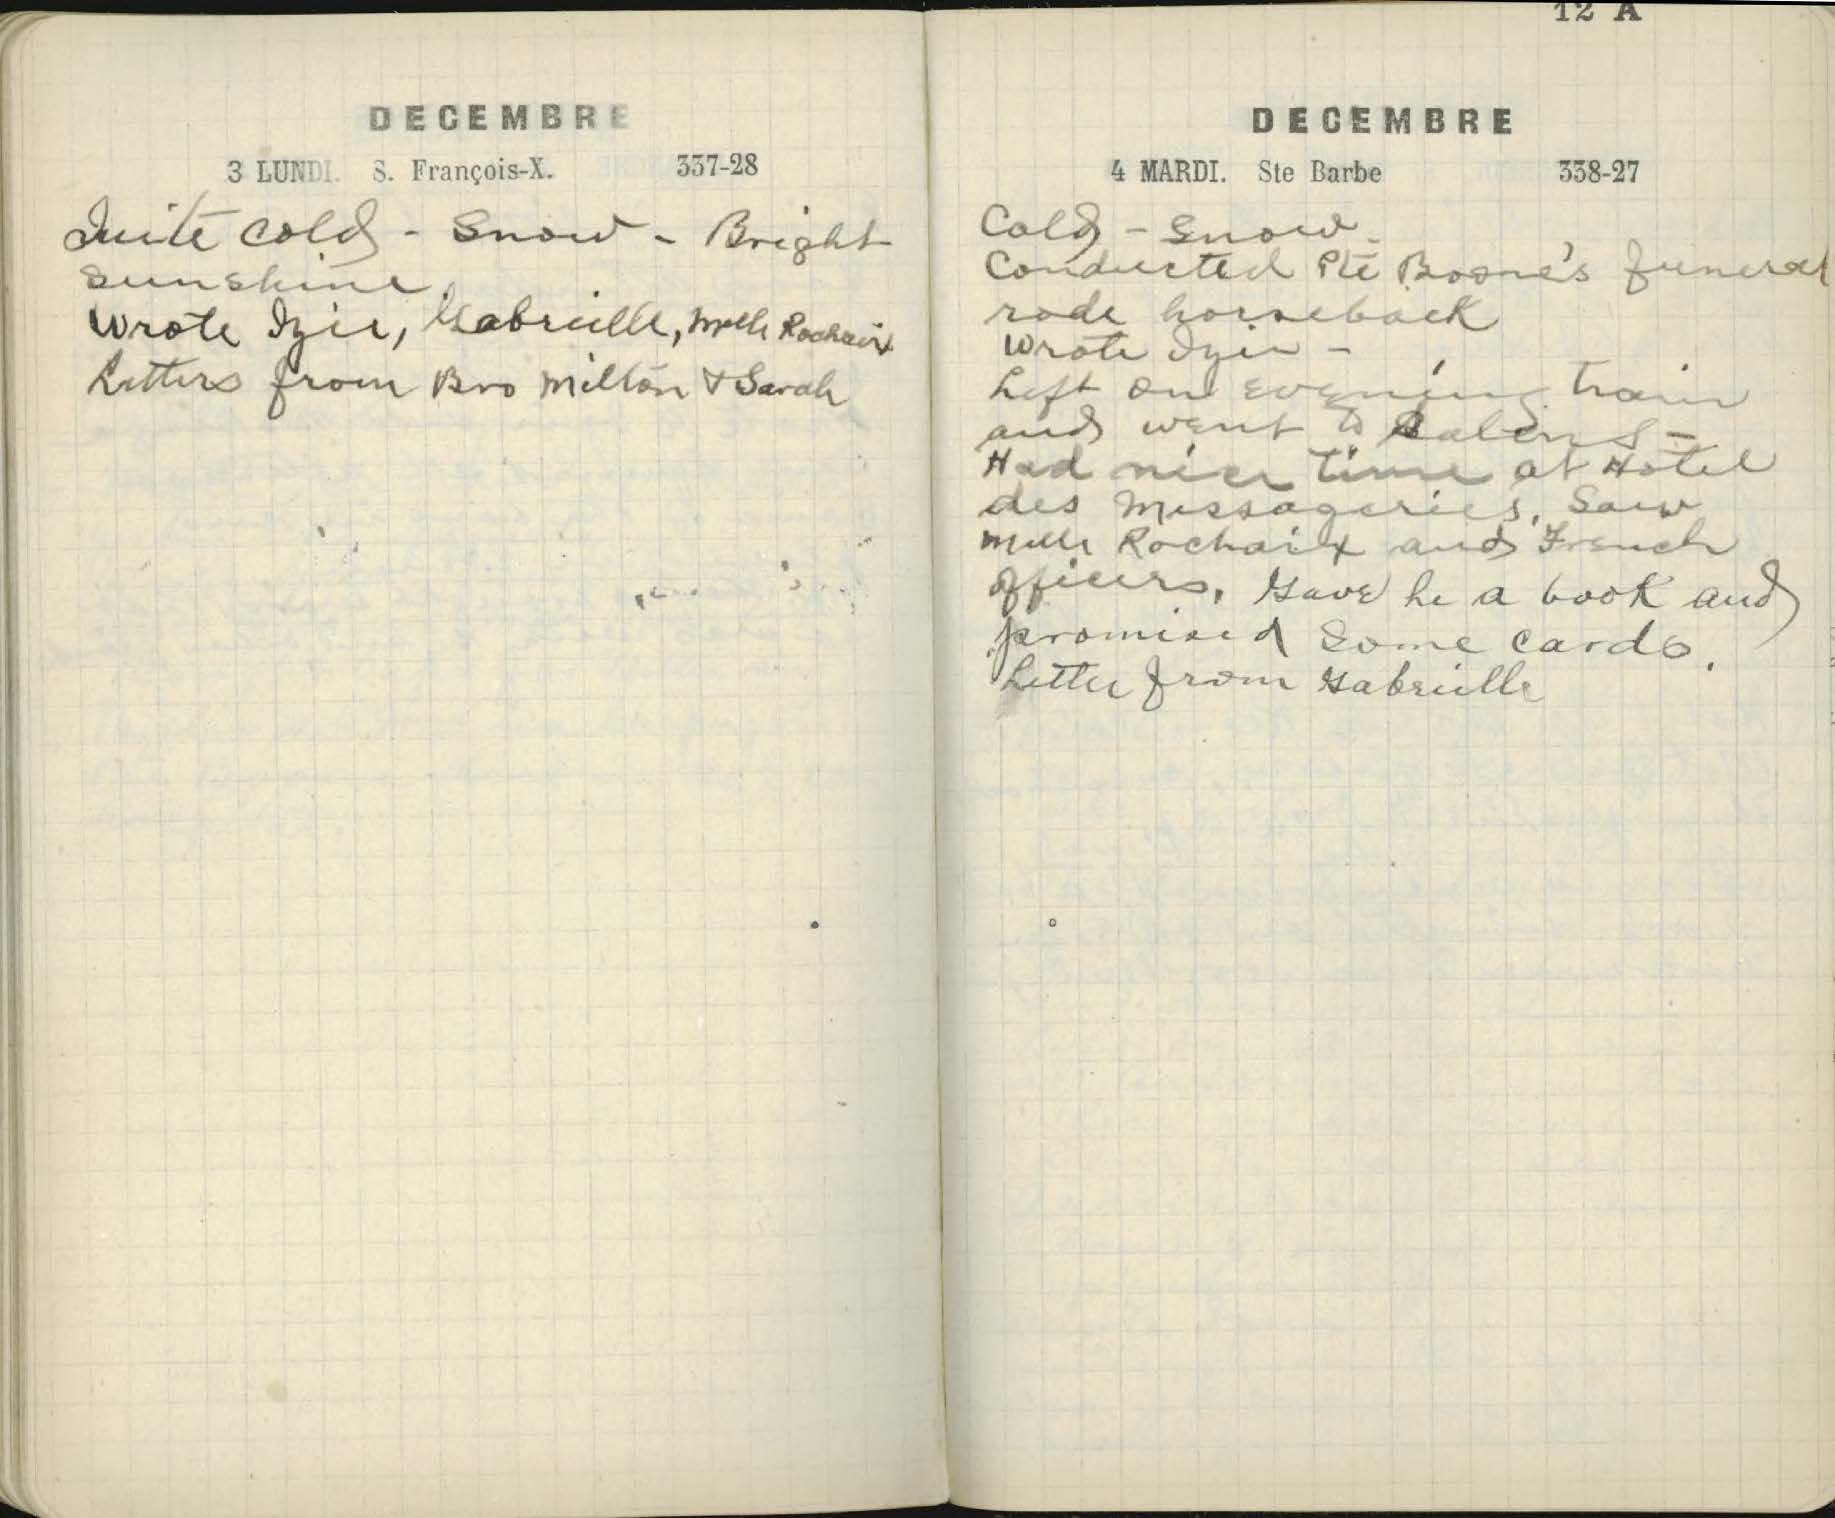 DECEMBRE
3 LUNDI. S. François-X. 337-28
Quite cold - Snow - Bright
sunshine
Wrote Izie, Gabrielle, Melle Rochaix
Letters from Bro Milton & Sarah
12 A
DECEMBRE
4 MARDI. Ste Barbe 338-27
Cold - Snow -
Conducted Pte Boone's funeral
rode horseback
Wrote Izie -
Left on evening train
and went to Salins -
Had nice time at Hotel
des Messageries, Saw
Melle Rochaix and French
officers, Gave he a book and
promised some cards.
Letter from Gabrielle